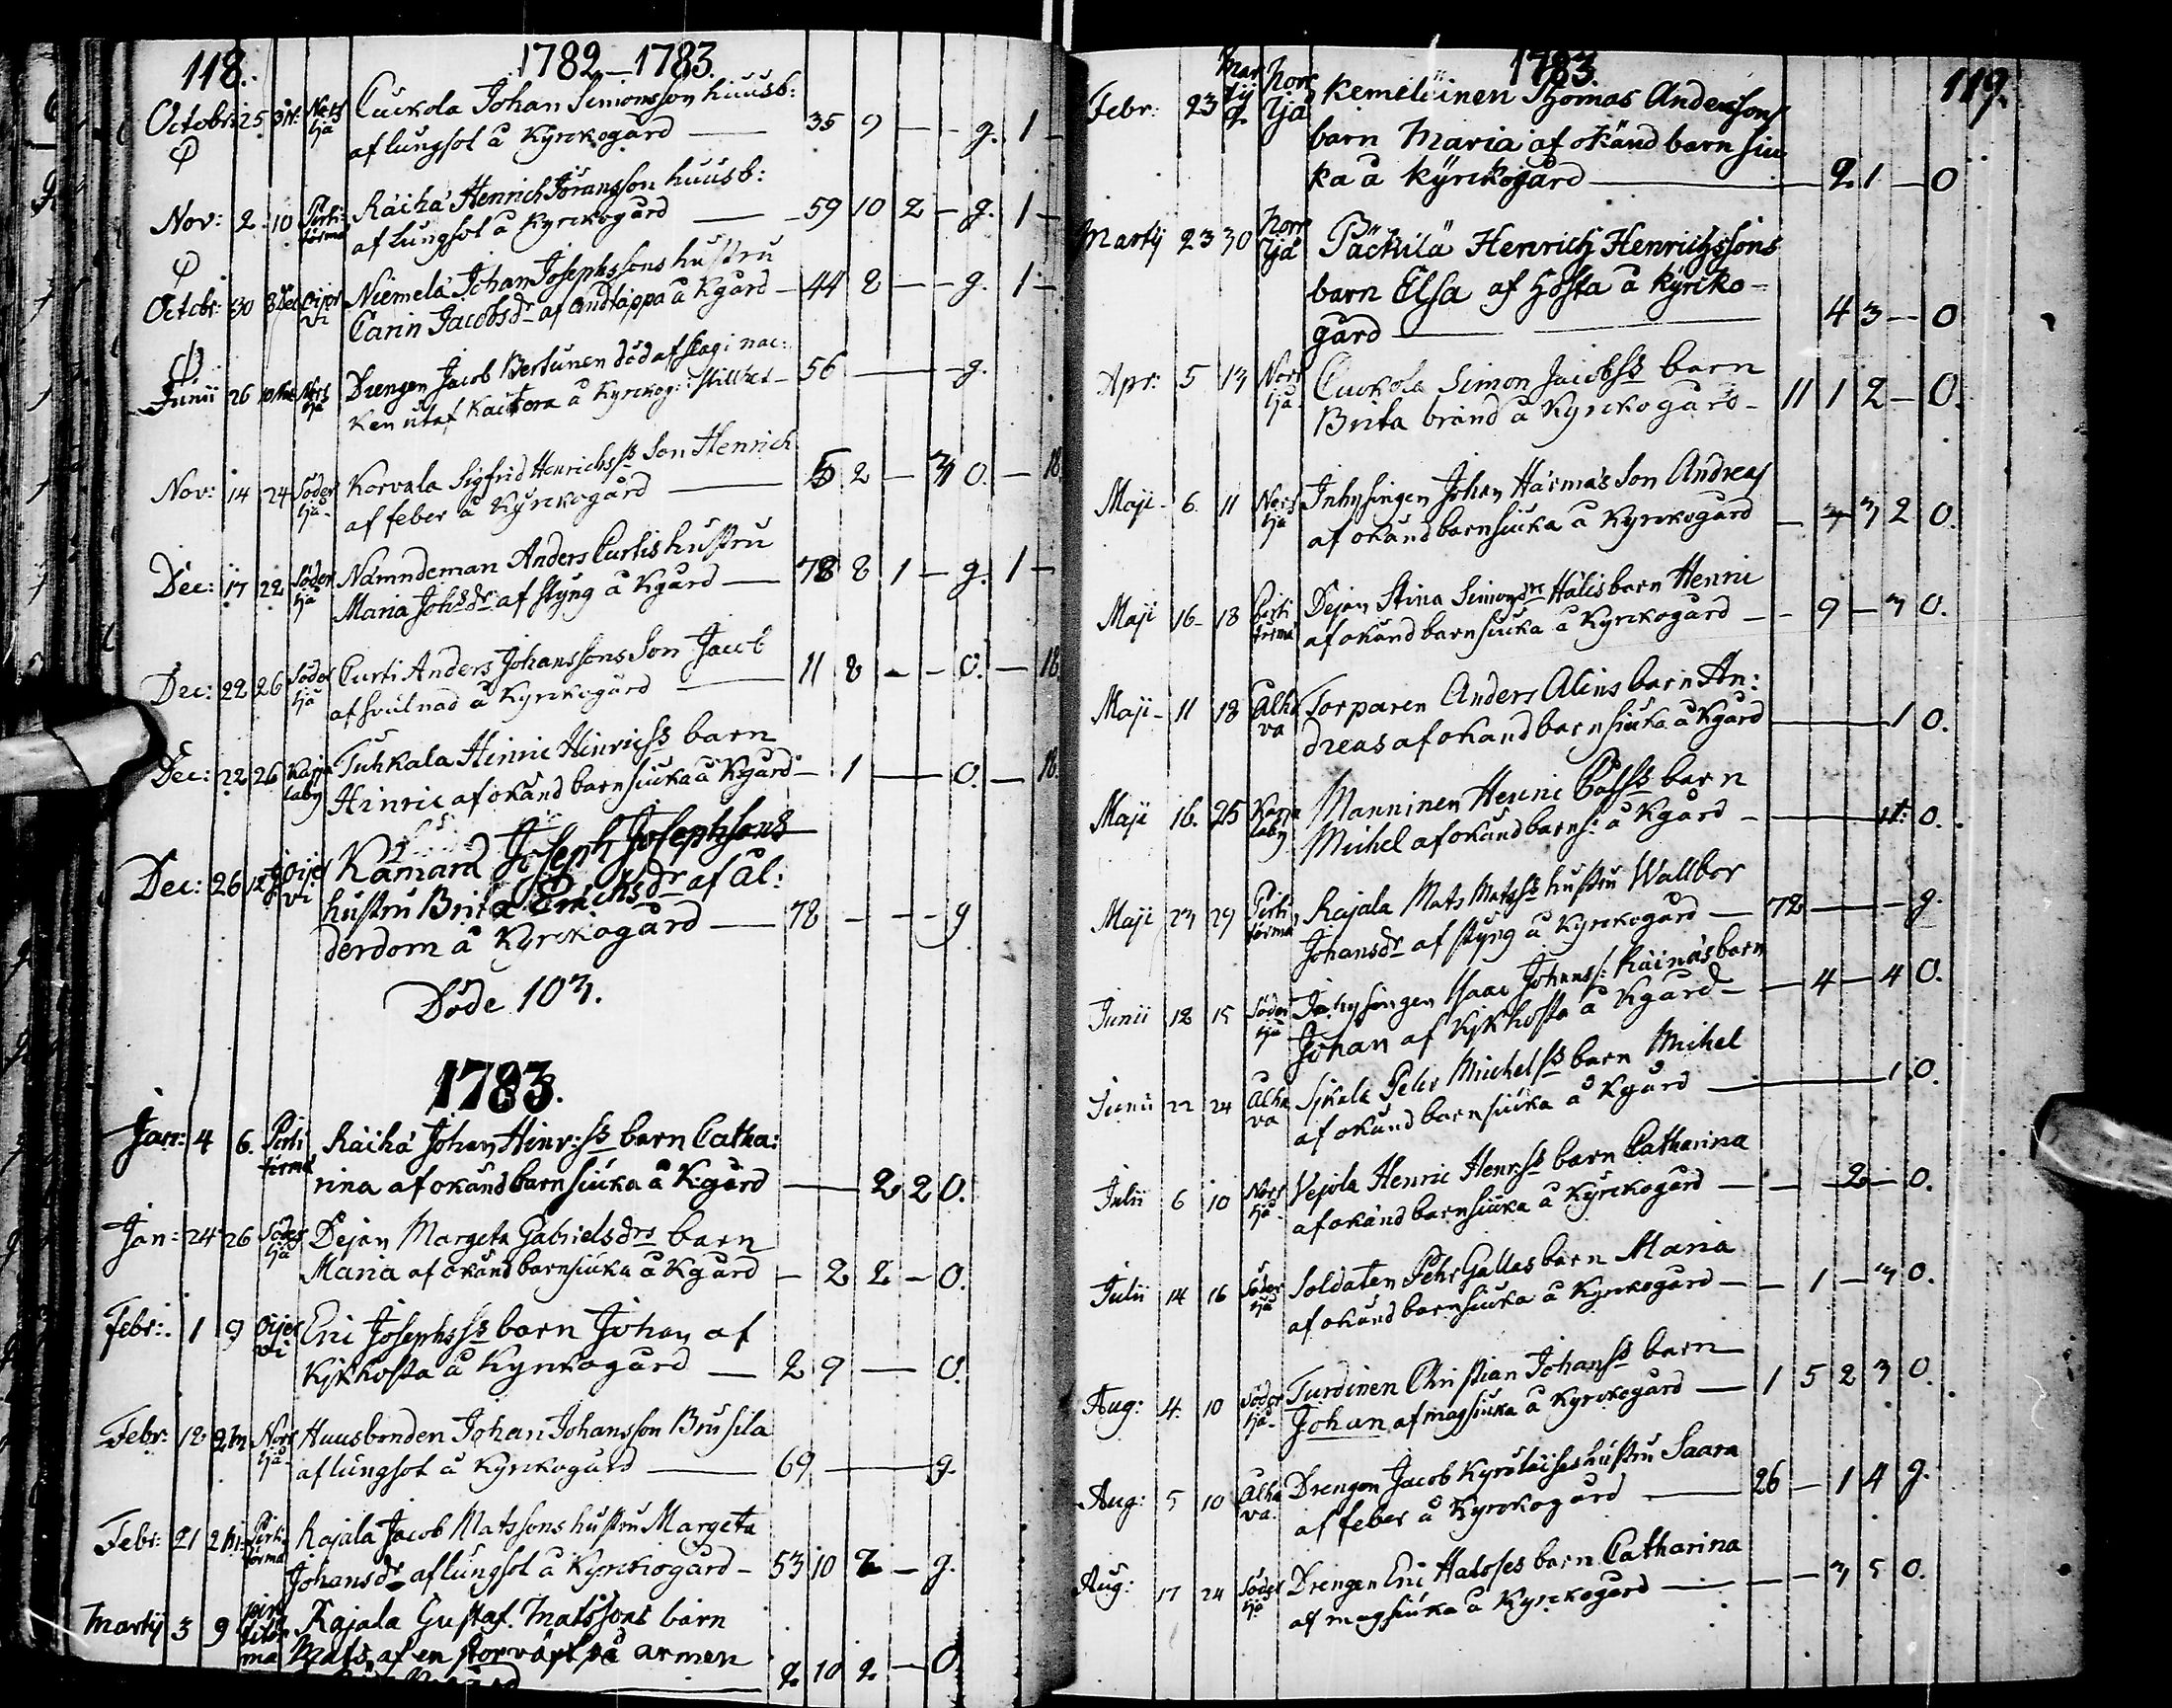 118.
1782-1783.
Octobr: 25 Norr ljä Cuckola Johan Simonsson huusb:
af lungsot å Kyrckogård — 35 9 — - g. 1 -
Nov: 2 10 Pirti törmä Räihä Henrich Jöransson huusb:
af lungsot å Kyrckogård — 59 10 2 - g. 1 -
Octobr: 30 8 Dec Oijer vi Niemelä Johan Josephssons hustru
Carin Jacobsdr af andtäppa å Kgård - 44 2 - - g. 1 -
Junii 26 Norr ljä Drengen Jacob Bertunen död af slag i nac:
ken utaf å Kyrckog: i stillhet - 56 — g.
Nov: 14 24 Söder ljä Korvala Sigfrid Henrichss Son Henrich
af feber å Kyrckogård — 5 2 - 3 O. - 18
Dec: 17 22 Söder ljä Nämndeman Anders Curtis hustru
Maria Johsdr af styng å Kgård — 78 8 1 - g. 1 -
Dec: 22 26 Söder ljä Curti Anders Johanssons Son Jacob
af svulnad å Kyrckogård — 11 8 - - O. - 18
Dec: 22 26 Karja laby Tuhkala Hinric Hinricss barn
Hinric af okänd barnsiuka å Kgård - 1 — O. - 18.
Dec: 26 Oijer vi Kämärä Joseph Josephsons
hustru Brita Erichsdr af ål:
derdom å Kyrckogård — 78 - - - g
Döde 103.
1783.
Jan: 4 6. Pirti törmä Räihä Johan Hinr:ss barn Catha:
rina af okänd barnsiuka å K:gård — 2 2 O.
Jan: 24 26 Söder ljä Dejan Margeta Gabrielsdrs barn
Maria af okänd barnsiuka å Kgård - 2 2 - O.
Febr: 1 9 Oijer vi Eric Josephsss barn Johan af
Kykhosta å Kyrckogård — 2 9 — O.
Febr: 12 23 Norr ljä Huusbonden Johan Johansson Brusila
af lungsot å Kyrckogård — 69 — g.
Febr: 21 23 Pirti törmä Rajala Jacob Matssons hustru Margeta
Johansdr af lungsot å Kyrckogård - 53 10 2 - g.
Martij 3 9 pirt titör mä Rajala Gustaf Matssons barn
Mats, af en stor värk på armen
2 10 2 - O
1783.
119.
Febr: 23 Mar tij 9. Norr ljä Kemeläinen Thomas Anderssons
barn Maria af okänd barn siu
ka å kyrckogård — 2 1 - O
Martij 23 30 Norr ljä Päckilä Henrich Henrichssons
barn Elsa af Hosta å kyrcko-
gård — 4 3 - O
Apr: 5 13 Norr ljä Cuckola Simon Jacobss barn
Brita bränd å Kyrckogård - 11 1 2 - O.
Maji 6. 11 Norr ljä Inhysingen Johan Härmäs Son Andreas
af okänd barnsiuka å Kyrckogård - 3 2 O.
Maji 16 18 Pirti törmä Dejan Stina Simonsdrs Hälis barn Henric
af okänd barnsiuka å Kyrckogård - 9 - 3 O.
Maji 11 18 Alha va Torparen Anders Alins barn An:
dreas af okänd barnsiuka å Kgård — 1 O.
Maji 16. 25 Karja laby Manninen Henric barn
Michel af okänd barns: å Kgård — O.
Maji 23 29 Pirti törmä Rajala Mats Matsss hustru Wallbor
Johansdr af styng å Kyrckogård — 72 — g.
Junii 12 15 Söder ljä Inhysingen Isaac Johanss: Räinäs barn
Johan af Kykhosta å Kgård - 4 - 4 O.
Junii 22 24 Alha va Sikala Pehr Michelss barn Michel
af okänd barnsiuka å Kgård — 1 O.
Julii 6 10 Norr ljä Vejola Henric Henr:ss barn Catharina
af okänd barnsiuka å Kyrckogård — 2 - O.
Julii 14 16 Söder ljä Soldaten Pehr Gallas barn Maria
af okänd barnsiuka å Kyrckogård — 1 - 3 O.
Aug: 4. 10 Söder ljä Turdinen Christian Johanss barn
Johan af magsiuka å Kyrckogård — 1 5 2 3 O.
Aug: 5 10 Alha va Drengen Jacob Kyrüläises hustru Saara
af feber å Kyrckogård — 26 - 1 4 g.
Aug: 17 24 Söder ljä Drengen Eric Haloses barn Catharina
af magsiuka å Kyrckogård — 3 5 O.